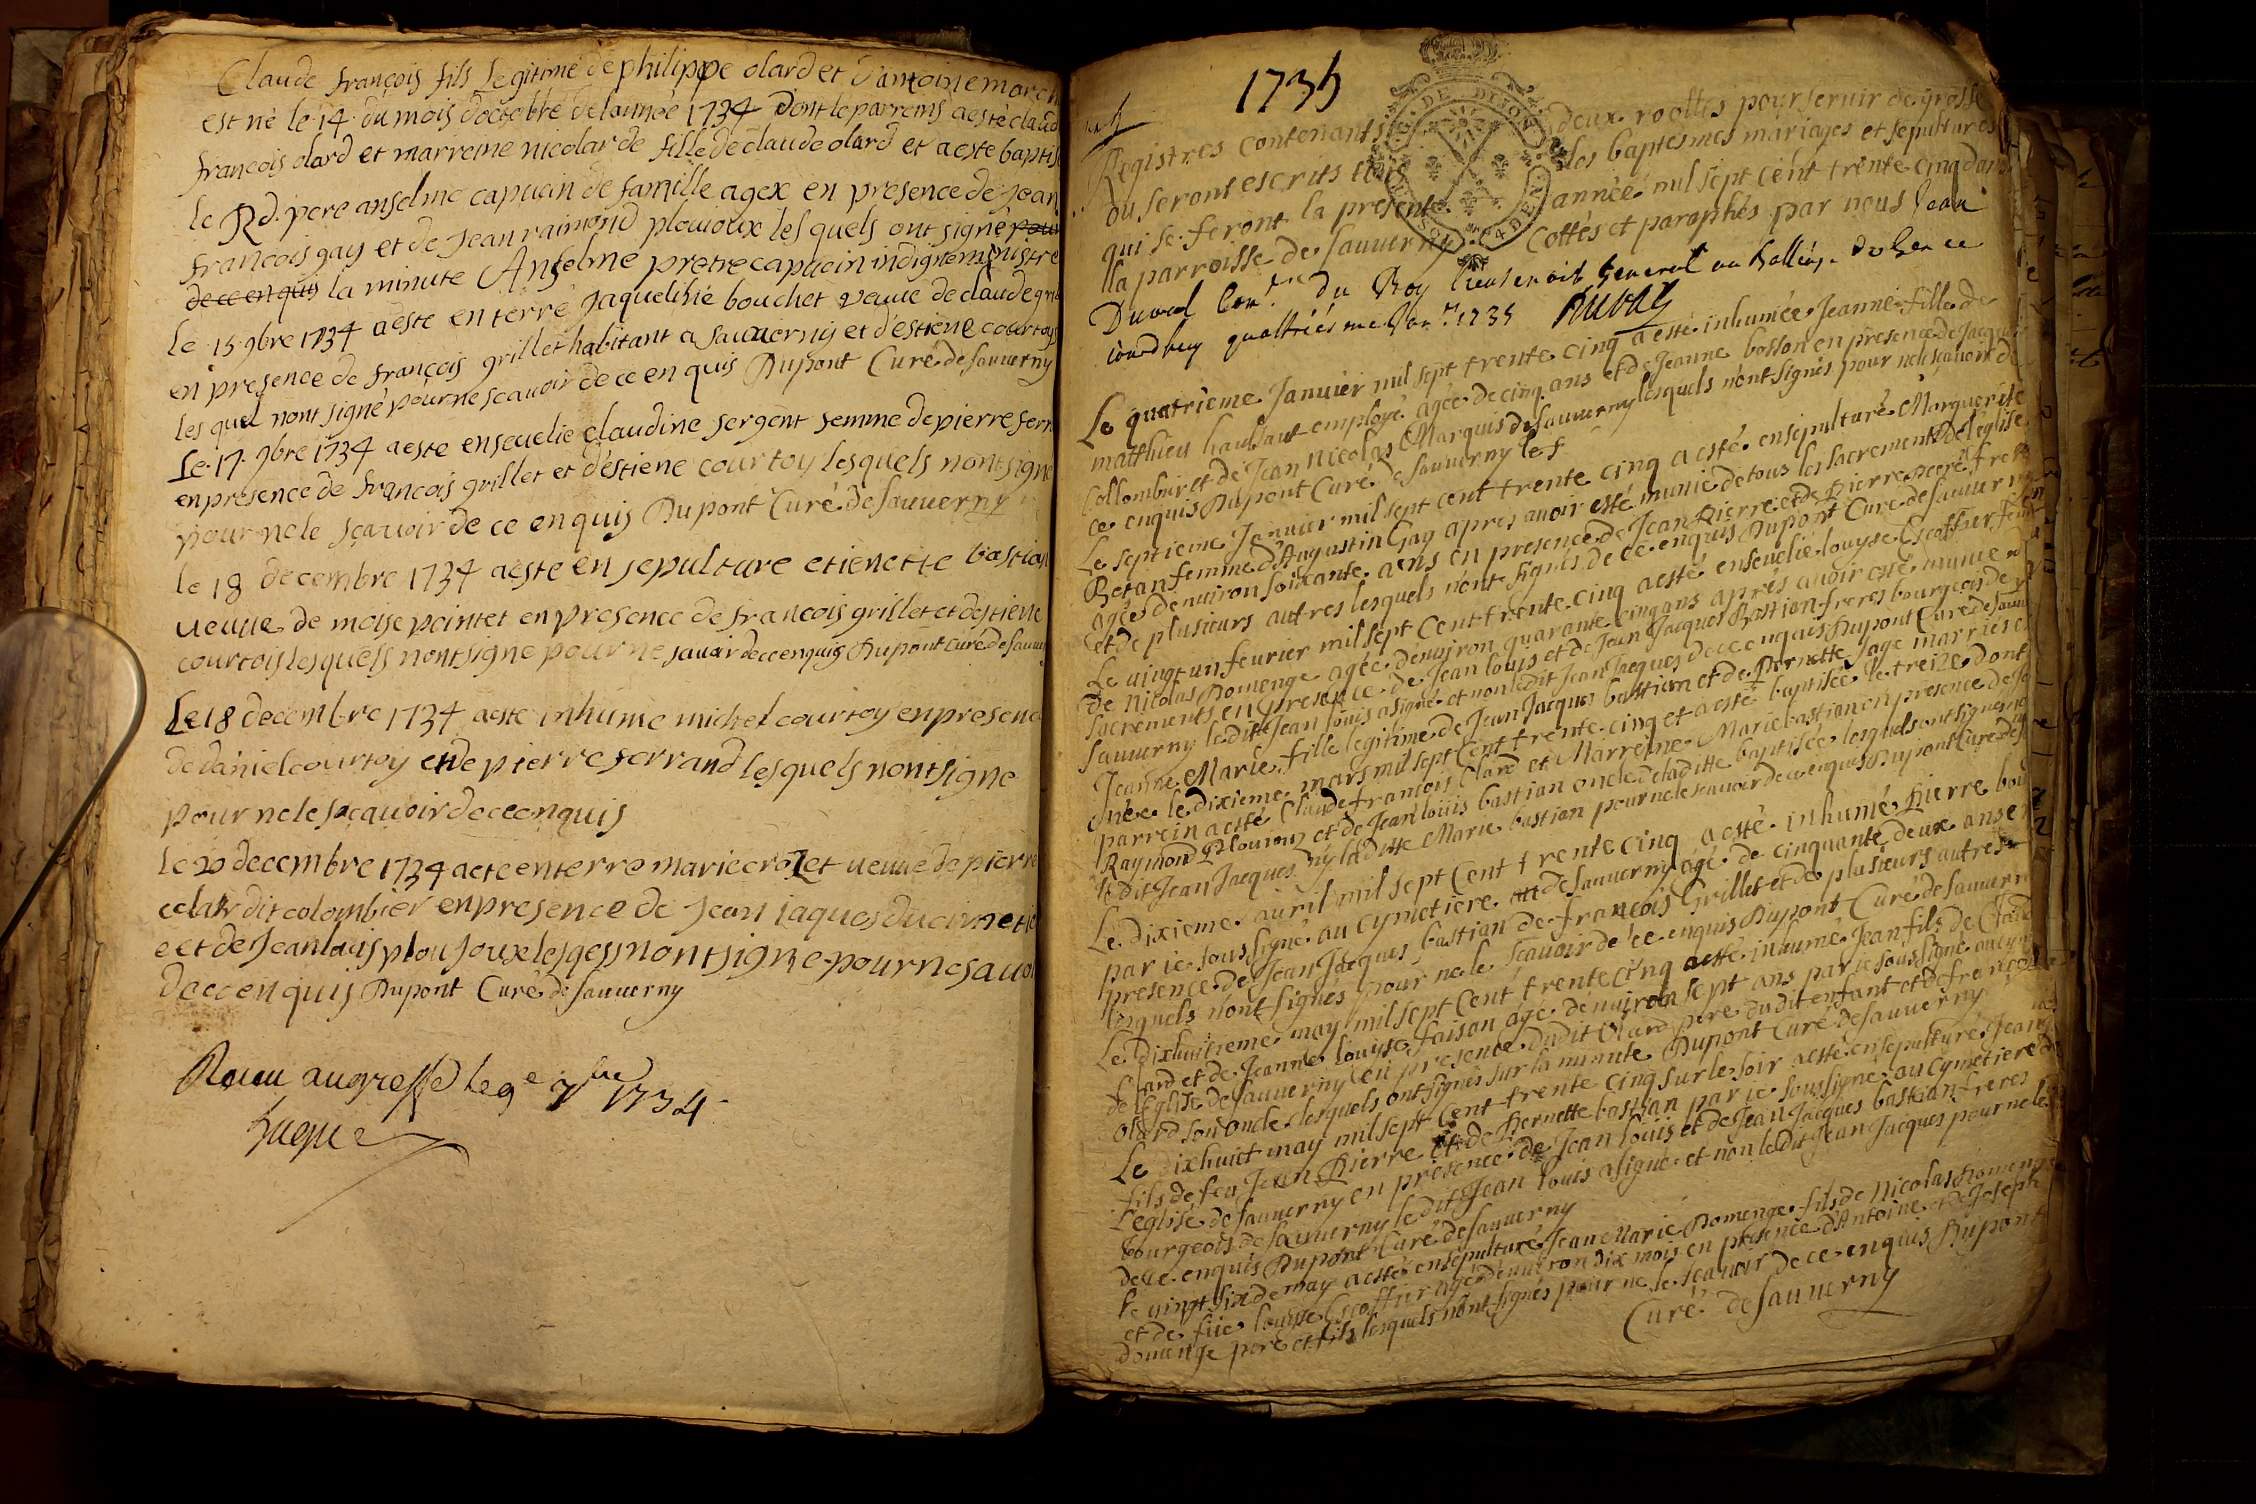 Claude françois fils Legitime de philippe olard et d'antoine
est né le 14 du mois d'octobre de lannee 1734 dont le parreins aesté claud
françois olard et marreine nicolarde fille de claude olard et aeste baptis
le Rd. pere anselme capucin de famille agex en présence de jean
francois gay et de jean raimond plouioux les quels ont signé pour
de ce enquis la minute Anselme pretre capucin indigne
le 15 9bre 1734 aeste enterré jaqueline bouchet veuue de claude
en presence de françois grillet habitant a Sauuerny et d'estiene courtoy
les quel nont signé pour ne scauoir de ce en quis Dupont Curé de sauuerny
Le 17 9bre 1734 aeste enseuelie claudine sergent femme de pierre ferr
en presence de françois grillet et d'estiene courtoy lesquels nont signe
pour ne le sçauoir de ce en quis Dupont Curé de sauuerny
le 18 decembre 1734 aesté en sepulture etienette bastian
ueuue de moise pointet en presence de francois grillet et destiene
courtois lesquels nont signe pour ne sauoir de ce enquis Dupont curé de sauu
Le 18 decembre 1734 aeste inhume michel courtoy en presenc
de daniel courtoy et de pierre ferrand lesquels nont signe
pour ne le scauoir de ce enquis
le 20 decembre 1734 aete enterre marie crozet ueuue de pierre
dit colombier en presence de jean iaques ducimetie
e et de Jean louis ploujoux lesqes nont signe pour ne sauoi
de ce en quis Dupont Curé de sauuerny
au greffe le 9e 1734
1735
Registres contenants deux roolles pour seruir de grosse
ou seront escrits tous les baptesmes mariages et sepultures
qui se feront la presente année mil sept cent trente cinq dans
la parroisse de sauuerny Cottés et paraphés par nous Jean
Duval du Roy lieutenant general au
quattriesme 1735 Duval
Le quatrieme Januier mil sept trente cinq aesté inhumée Jeanne fille de
matthieu employé agée de cinq ans et de Jeanne bosson en presence de Jacques
Collombur et de Jean Nicolas Marquis de sauuerny lesquels nont signés pour ne le scauoir de
ce enquis Dupont Curé de sauuerny
Le septieme Januier mil sept cent trente cinq aesté ensepulturé Marguerite
Betan femme d'Augustin Gay apres auoir esté munie de tous les sacrements de l'église
agée denuiron soixante ans en presence de Jean Pierre et de Pierre
et de plusieurs autres lesquels nont signés de ce enquis Dupont Curé de sauuerny
Le uingt un feurier mil sept Cent trente cinq aesté enseuelie louyse Escoffier
de Nicolas Domenge agée denuiron quarante cinq ans apres auoir esté munie
sacrements en presence de Jean louis et de Jean Jacques Bastian freres bourgeois de
sauuerny ledit Jean louis asigné et non ledit Jean Jacques de ce enquis Dupont Curé de sauu
Jeanne Marie fille legitime de Jean Jacques bastian et de Pernette
née le dixieme mars mil sept Cent trente cinq et aesté baptisée le treize dont
parrein aesté Claude francois Clare et Marreine Marie bastian en presence de
Raymond Plouioux et de Jean louis bastian oncle de laditte baptisée lesquels ont signé
ledit Jean Jacques ny laditte Marie bastian pour ne le scauoir de ce enquis Dupont Curé de
Le Dixieme auril mil sept Cent trente cinq aesté inhumé Pierre
par ie soussigné au cymetiere de sauuerny agé de cinquante deux ans
presence de Jean Jacques bastian de françois Grillet et de plusieurs autres
lesquels nont signés pour ne le scauoir de ce enquis Dupont Curé de sauuerny
Le Dixhuitieme may mil sept Cent trente cinq aesté inhumé Jean fils de Claud
olard et de Jeanne louyse faisan agé denuiron sept ans par ie soussigné au
de l'Eglise de sauuerny en presence dudit Olard pere dudit enfant et de
Olard son oncle lesquels ont signés sur la minute Dupont Curé de sauuerny
Le Dixhuit may mil sept Cent trente cinq sur le soir aesté ensepulturé Jean
fils de feu Jean Pierre et de Pernette bastian par ie soussigné au Cymetiere de
l'eglise de sauuerny en presence de Jean louis et de Jean Jacques bastian freres
bourgeois de sauuerny ledit Jean louis asigné et non ledit Jean Jacques pour ne le
de ce enquis Dupont Curé de sauuerny
le uingt six de may aesté ensepulturé Jean Marie Domenge fils de Nicolas Domenge
et de louyse Escoffier agé denuiron dix mois en presence d'Antoine et de Joseph
domenge pere et fils lesquels nont signés pour ne le scauoir de ce enquis Dupont
Curé de sauuerny